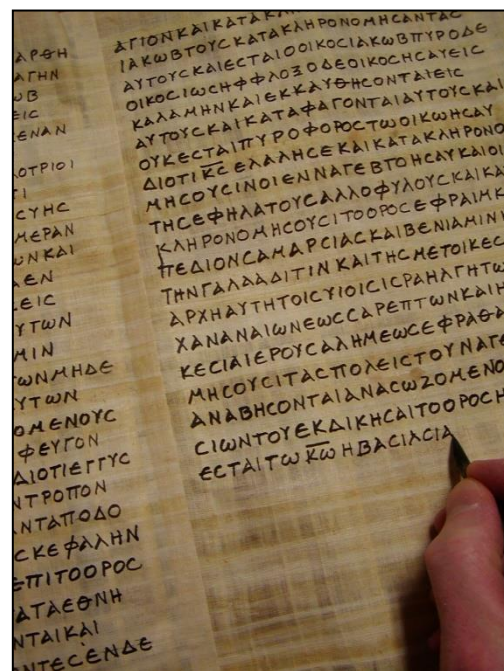 ΑΡΘΗ
ΑΓΗΝ
ΩΒ
ΕΙϹ
ΕΝΑΝ
ΛΟΤΡΙΟΙ
ΤΙ
ϹΥΗϹ
ΜΕΡΑΝ
ΩΝΚΑΙ
ΑΕΝ
ΕΙϹ
ΥΤΩΝ
ΜΙΝ
ΤΩΝΜΗΔΕ
ΥΤΩΝ
ΟΜΕΝΟΥϹ
ΦΕΥΓΟΝ
ΔΙΟΤΙΕΓΓΥϹ
ΝΤΡΟΠΟΝ
ΝΤΑΠΟΔΟ
ϹΚΕΦΑΛΗΝ
ΕΠΙΤΟΟΡΟϹ
ΑΤΑΕΘΝΗ
ΝΤΑΙΚΑΙ
ΑΝΤΕϹΕΝΔΕ
ΑΓΙΟΝΚΑΙΚΑΤΑΚΛ
ΙΑΚΩΒΤΟΥϹΚΑΤΑΚΛΗΡΟΝΟΜΗϹΑΝΤΑϹ
ΑΥΤΟΥϹΚΑΙΕϹΤΑΙΟΟΙΚΟϹΙΑΚΩΒΠΥΡΟΔΕ
ΟΙΚΟϹΙΩϹΗΦΦΛΟΞΟΔΕΟΙΚΟϹΗϹΑΥΕΙϹ
ΚΑΛΑΜΗΝΚΑΙΕΚΚΑΥΘΗϹΟΝΤΑΙΕΙϹ
ΑΥΤΟΥϹΚΑΙΚΑΤΑΦΑΓΟΝΤΑΙΑΥΤΟΥϹΚΑΙ
ΟΥΚΕϹΤΑΙΠΥΡΟΦΟΡΟϹΤΩΟΙΚΩΗϹΑΥ
ΔΙΟΤΙΚ̅Ϲ̅ΕΛΑΛΗϹΕΚΑΙΚΑΤΑΚΛΗΡΟΝΟ
ΜΗϹΟΥϹΙΝΟΙΕΝΝΑΓΕΒΤΟΗϹΑΥΚΑΙΟΙ
ΤΗϹΕΦΗΛΑΤΟΥϹΑΛΛΟΦΥΛΟΥϹΚΑΙΚΑ
ΚΛΗΡΟΝΟΜΗϹΟΥϹΙΤΟΟΡΟϹΕΦΡΑΙΜΚ
ΠΕΔΙΟΝϹΑΜΑΡϹΙΑϹΚΑΙΒΕΝΙΑΜΙΝΚ
ΤΗΝΓΑΛΑΑΔΙΤΙΝΚΑΙΤΗϹΜΕΤΟΙΚΕϹ
ΑΡΧΗΑΥΤΗΤΟΙϹΥΙΟΙϹΙϹΡΑΗΛΓΗΤΩ
ΧΑΝΑΝΑΙΩΝΕΩϹϹΑΡΕΠΤΩΝΚΑΙΗ
ΚΕϹΙΑΙΕΡΟΥϹΑΛΗΜΕΩϹΕΦΡΑΘΑ
ΜΗϹΟΥϹΙΤΑϹΠΟΛΕΙϹΤΟΥΝΑΓΕ
ΑΝΑΒΗϹΟΝΤΑΙΑΝΑϹΩΖΟΜΕΝΟ
ϹΙΩΝΤΟΥΕΚΔΙΚΗϹΑΙΤΟΟΡΟϹΗ
ΕϹΤΑΙΤΩΚ̅Ω̅ΗΒΑϹΙΛϹΙΑ